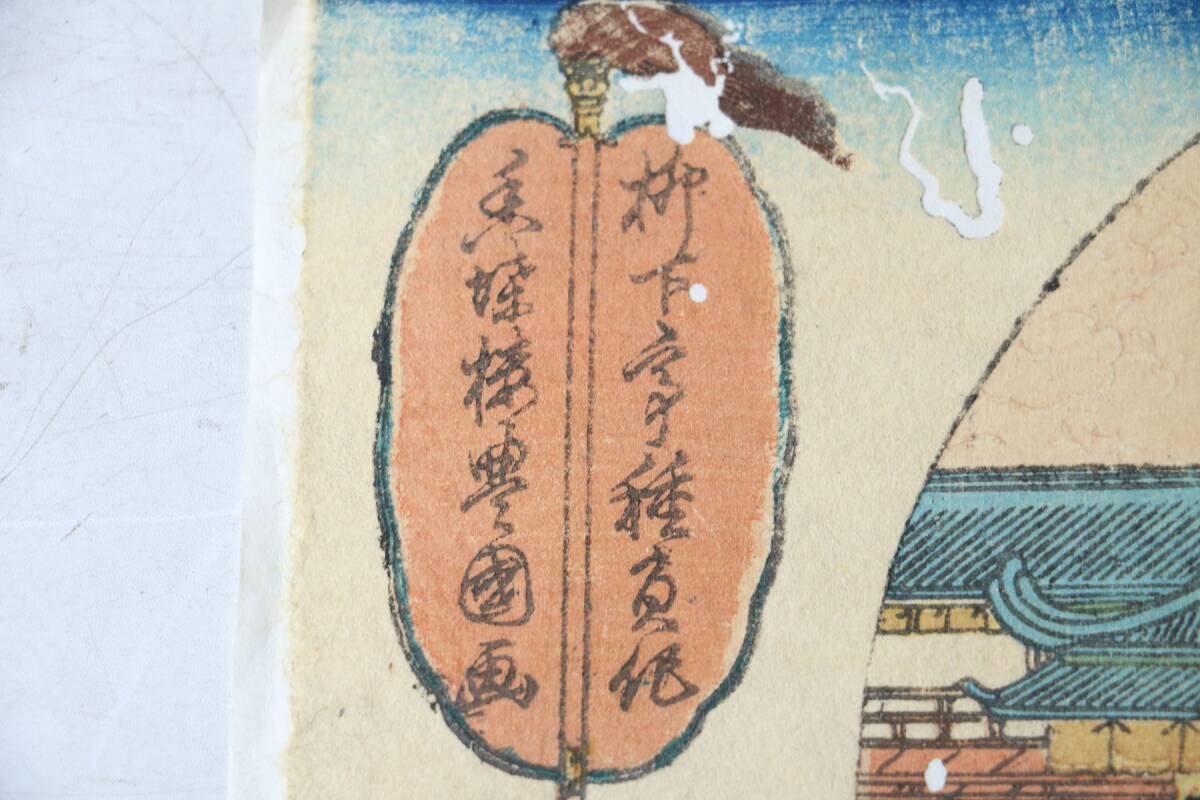 柳下亭種員作
香蝶楼豊國画